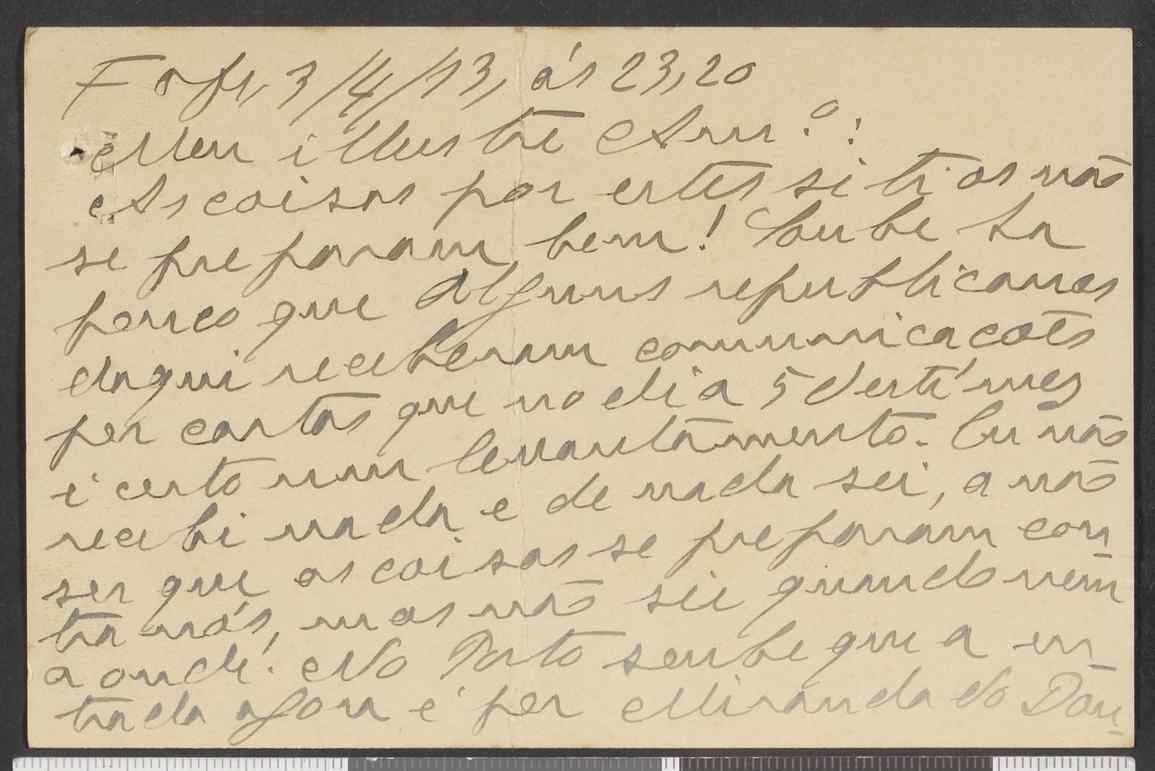 Fafe, 3/4/913, ás 23,20
Meu illustre Am.º:
As coisas por estes sitios não
se preparam bem! Soube ha
pouco que alguns republicanos
daqui receberam comunicacoes
por cartas que no dia 5 deste mez
é certo um levantamento. Eu não
recebi nada e de nada sei, a não
ser que as coisas se preparam con
tra nós, mas não sei quando nem
aonde. No Porto soube que a en-
trada agora é por Miranda do Dou-